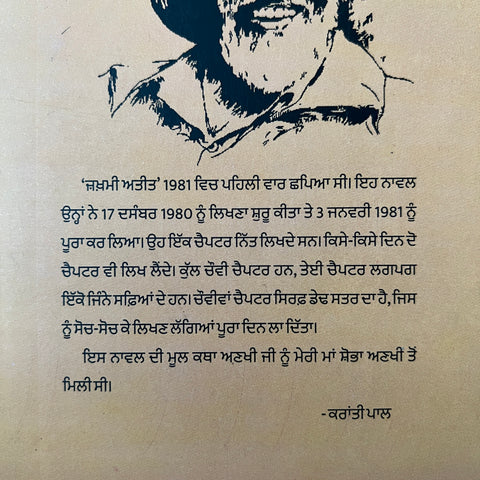 ‘ਜ਼ਖ਼ਮੀ ਅਤੀਤ’ 1981 ਵਿਚ ਪਹਿਲੀ ਵਾਰ ਛਪਿਆ ਸੀ। ਇਹ ਨਾਵਲ
ਉਨ੍ਹਾਂ ਨੇ 17 ਦਸੰਬਰ 1980 ਨੂੰ ਲਿਖਣਾ ਸ਼ੁਰੂ ਕੀਤਾ ਤੇ 3 ਜਨਵਰੀ 1981 ਨੂੰ
ਪੂਰਾ ਕਰ ਲਿਆ। ਉਹ ਇੱਕ ਚੈਪਟਰ ਨਿੱਤ ਲਿਖਦੇ ਸਨ। ਕਿਸੇ-ਕਿਸੇ ਦਿਨ ਦੋ
ਚੈਪਟਰ ਵੀ ਲਿਖ ਲੈਂਦੇ। ਕੁੱਲ ਚੌਵੀ ਚੈਪਟਰ ਹਨ, ਤੇਈ ਚੈਪਟਰ ਲਗਪਗ
ਇੱਕੋ ਜਿੰਨੇ ਸਫ਼ਿਆਂ ਦੇ ਹਨ। ਚੌਵੀਵਾਂ ਚੈਪਟਰ ਸਿਰਫ਼ ਡੇਢ ਸਤਰ ਦਾ ਹੈ, ਜਿਸ
ਨੂੰ ਸੋਚ-ਸੋਚ ਕੇ ਲਿਖਣ ਲੱਗਿਆਂ ਪੂਰਾ ਦਿਨ ਲਾ ਦਿੱਤਾ।
ਇਸ ਨਾਵਲ ਦੀ ਮੂਲ ਕਥਾ ਅਣਖੀ ਜੀ ਨੂੰ ਮੇਰੀ ਮਾਂ ਸ਼ੋਭਾ ਅਣਖੀ ਤੋਂ
ਮਿਲੀ ਸੀ।
- ਕਰਾਂਤੀ ਪਾਲ